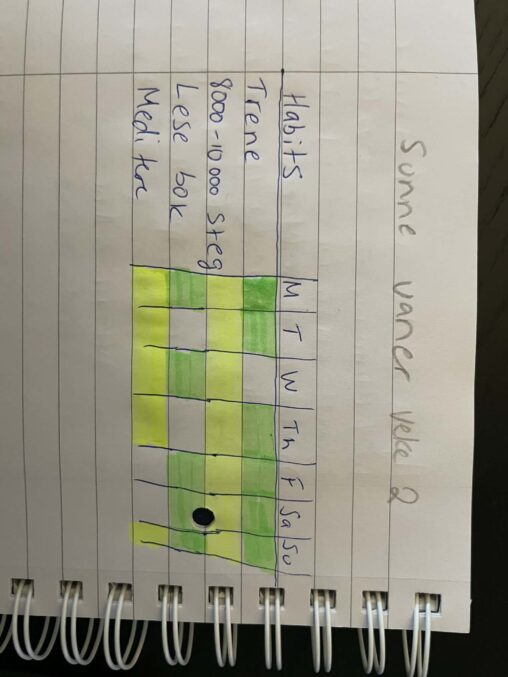 Sunne vaner veke 2
Habits M T W Th F Sa Su
Trene
8000-10000 steg
Lese bok
Meditere